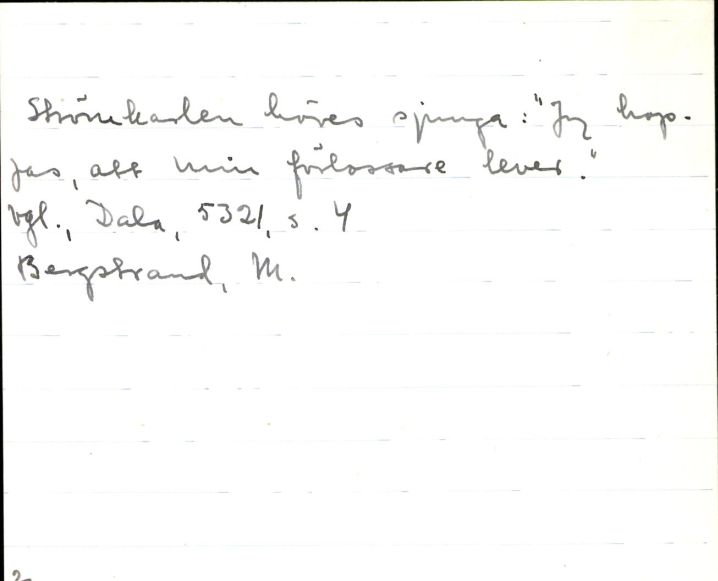 Strömkarlen höres sjunga: "Jag hop-
pas, att min förlossare lever."
Vgl., Dala, 5321, s. 4
Bergstrand, M.